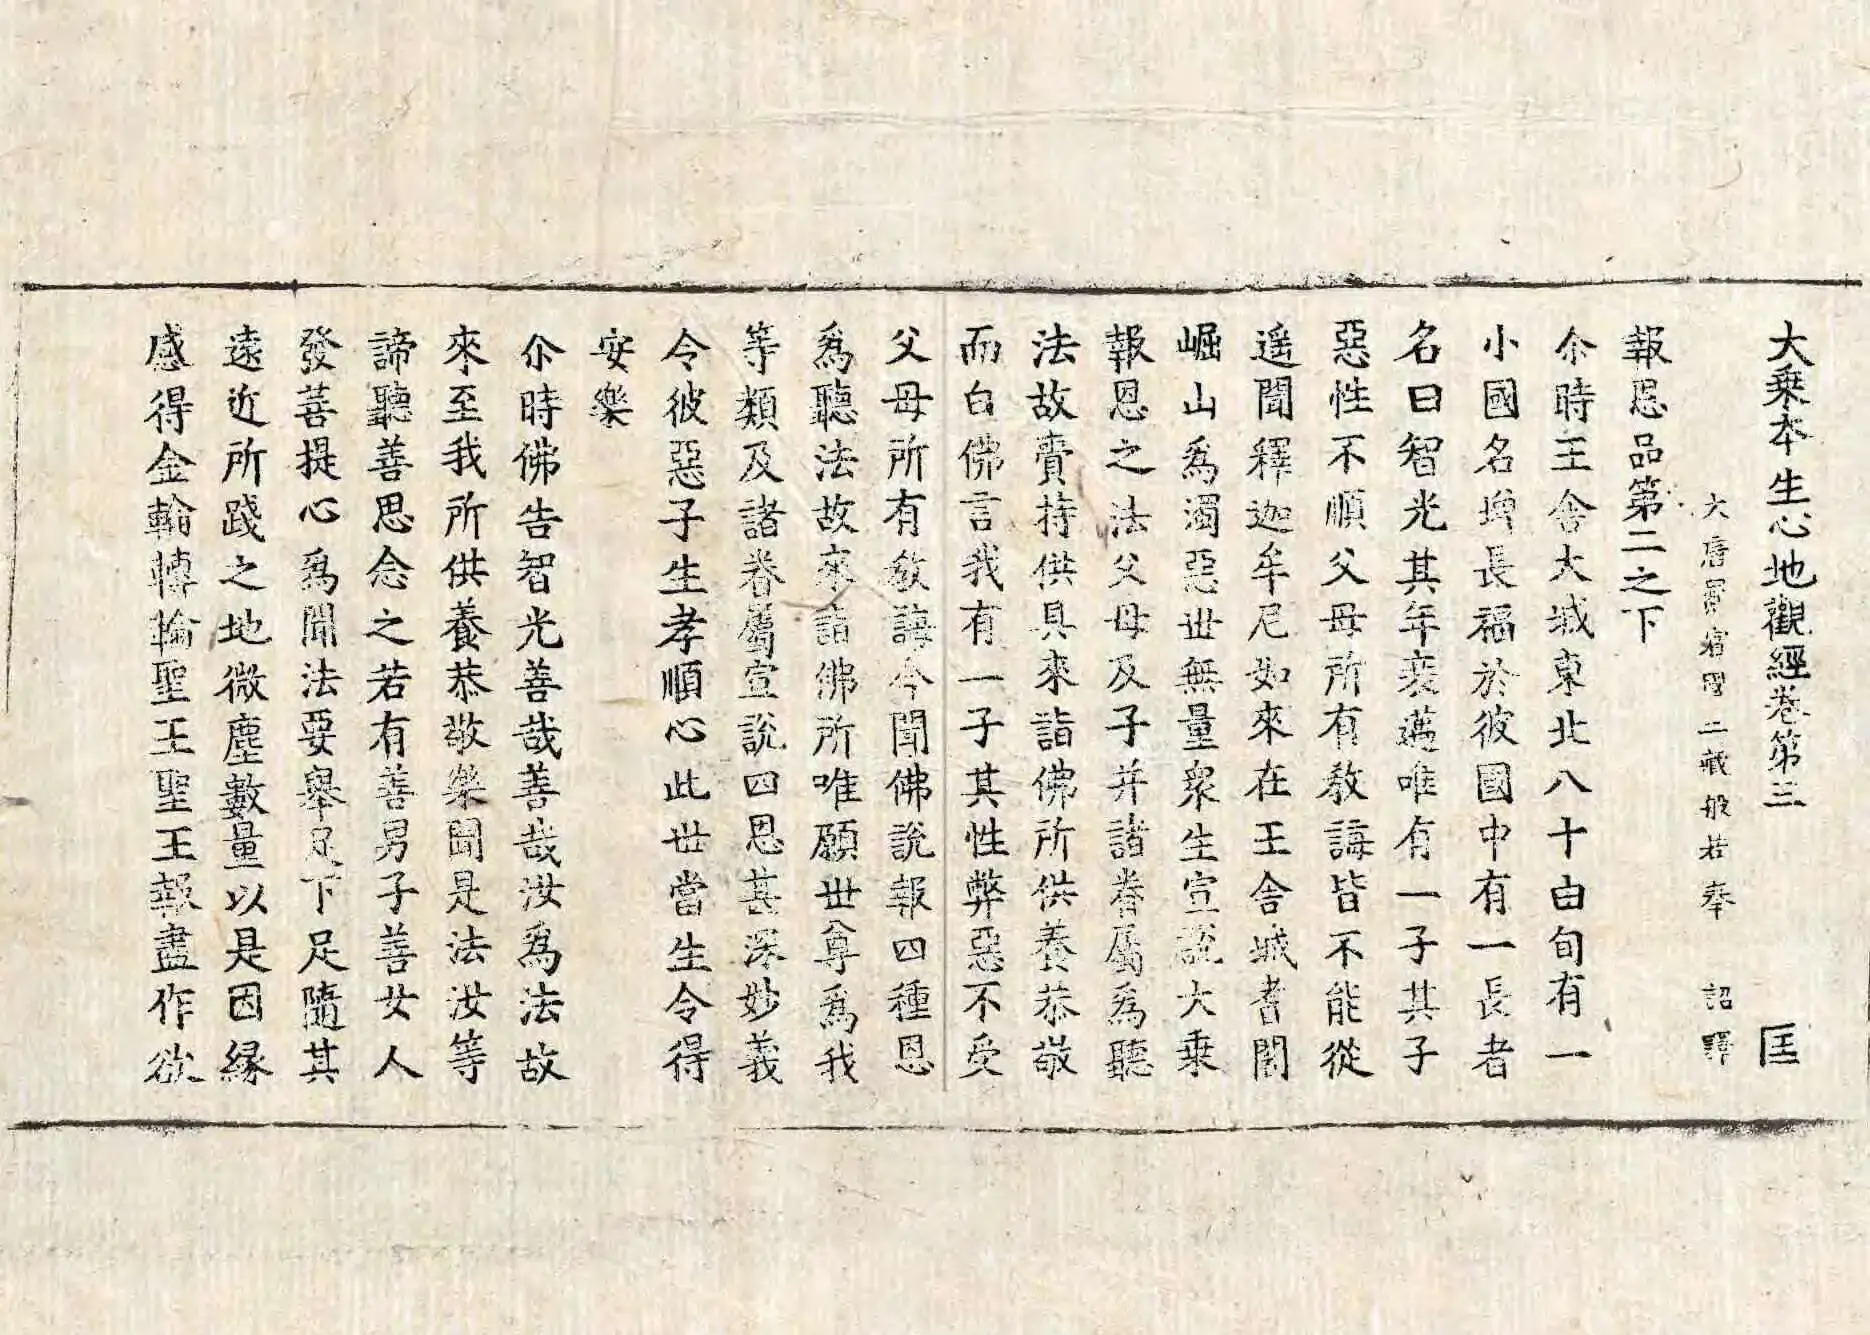 大乗本生心地觀經卷第三 匡
大唐罽賓國三藏般若奉 詔譯
報恩品第二之下
尒時王舍大城東北八十由旬有一
小國名増長福於彼國中有一長者
名曰智光其年衰邁唯有一子其子
惡性不順父母所有教誨皆不能從
遥聞釋迦牟尼如來在王舍城耆闍
崛山爲濁惡世無量衆生宣説大乗
報恩之法父母及子并諸眷屬爲聽
法故賷持供具來詣佛所供養恭敬
而白佛言我有一子其性弊惡不受
父母所有教誨今聞佛說報四種恩
爲聽法故來詣佛所唯願世尊爲我
等類及諸眷屬宣說四恩甚深妙義
令彼惡子生孝順心此世當生令得
安樂
尒時佛告智光善哉善哉汝爲法故
來至我所供養恭敬樂聞是法汝等
諦聽善思念之若有善男子善女人
發菩提心爲聞法要舉足下足隨其
遠近所踐之地微塵數量以是因縁
感得金輪轉輪聖王聖王報盡作欲